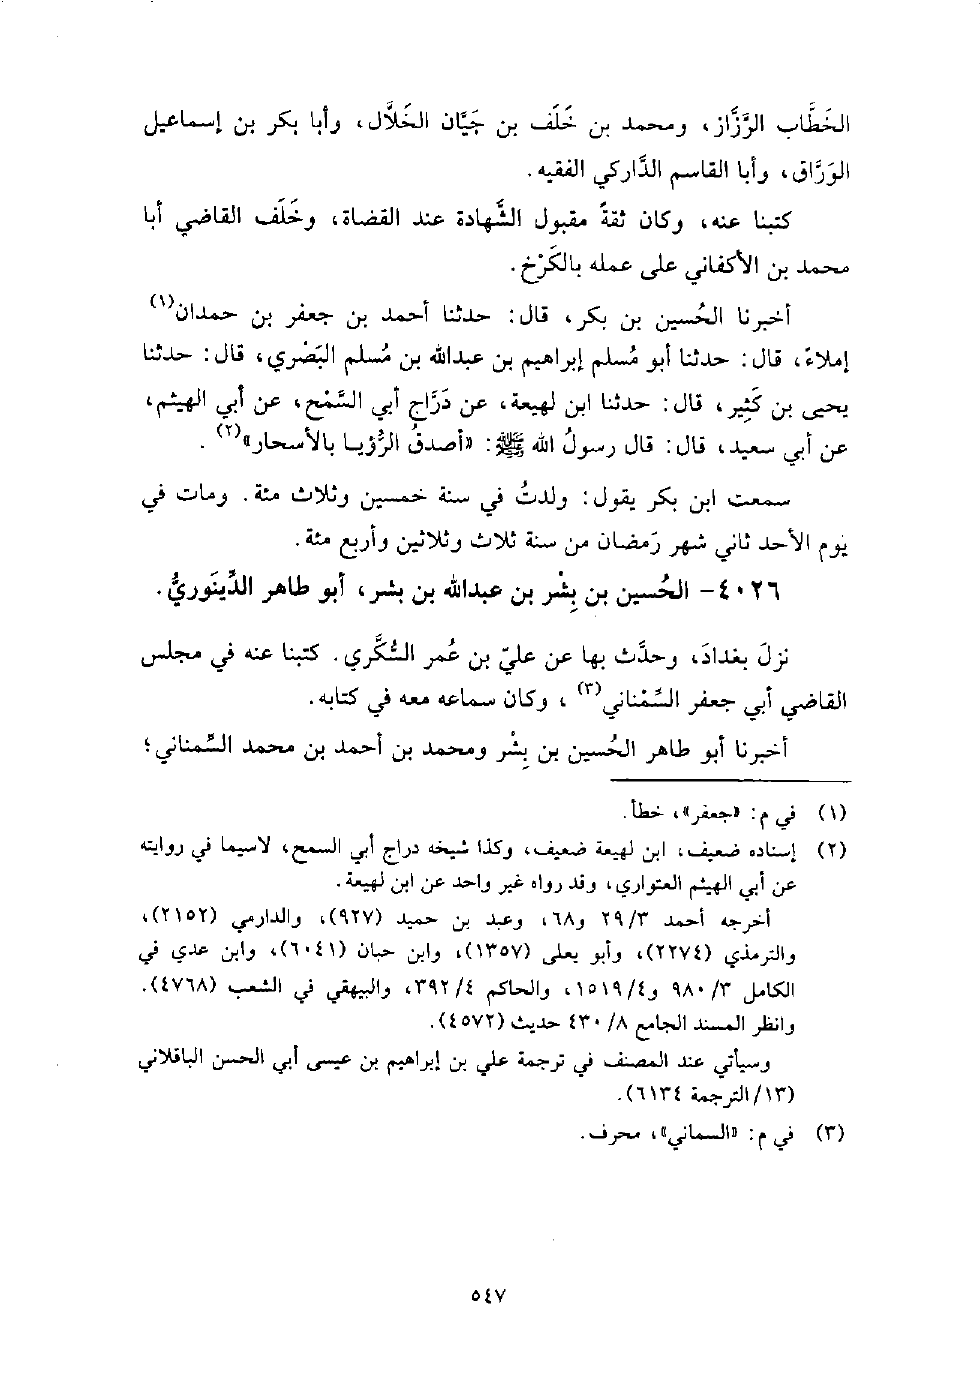 الخَطَّاب الرَّزَّاز، ومحمد بن خَلَف بن جَيَّان الخَلَّال، وأبا بكر بن إسماعيل
الوَرَّاق، وأبا القاسم الدَّاركي الفقيه.
كتبنا عنه، وكان ثقةً مقبول الشَّهادة عند القضاة، وخَلَف القاضي أبا
محمد بن الأكفاني على عمله بالكَرْخ.
أخبرنا الحُسين بن بكر، قال: حدثنا أحمد بن جعفر بن حمدان(١)
إملاءً، قال: حدثنا أبو مُسلم إبراهيم بن عبدالله بن مُسلم البَصْري، قال: حدثنا
يحيى بن كَثِير، قال: حدثنا ابن لهيعة، عن دَرَّاج أبي السَّمْح، عن أبي الهيثم،
عن أبي سعيد، قال: قال رسولُ الله ﷺ: «أصدقُ الرُّؤيا بالأسحار»(٢).
سمعت ابن بكر يقول: ولدتُ في سنة خمسين وثلاث مئة. ومات في
يوم الأحد ثاني شهر رَمضان من سنة ثلاث وثلاثين وأربع مئة.
٤٠٢٦- الحُسين بن بِشْر بن عبدالله بن بشر، أبو طاهر الدِّينَوريُّ.
نزلَ بغدادَ، وحدَّث بها عن عليّ بن عُمر السُّكَّري. كتبنا عنه في مجلس
القاضي أبي جعفر السِّمْناني(٣)، وكان سماعه معه في كتابه.
أخبرنا أبو طاهر الحُسين بن بِشْر ومحمد بن أحمد بن محمد السِّمناني؛
(١) في م: «جعفر»، خطأ.
(٢) إسناده ضعيف، ابن لهيعة ضعيف، وكذا شيخه دراج أبي السمح، لاسيما في روايته
عن أبي الهيثم العتواري، وقد رواه غير واحد عن ابن لهيعة.
أخرجه أحمد ٣/ ٢٩ و٦٨، وعبد بن حميد (٩٢٧)، والدارمي (٢١٥٢)،
والترمذي (٢٢٧٤)، وأبو يعلى (١٣٥٧)، وابن حبان (٦٠٤١)، وابن عدي في
الكامل ٣/ ٩٨٠ و٤/ ١٥١٩، والحاكم ٤/ ٣٩٢، والبيهقي في الشعب (٤٧٦٨).
وانظر المسند الجامع ٨/ ٤٣٠ حديث (٤٥٧٢).
وسيأتي عند المصنف في ترجمة علي بن إبراهيم بن عيسى أبي الحسن الباقلاني
(١٣/ الترجمة ٦١٣٤).
(٣) في م: «السماني»، محرف.
٥٤٧